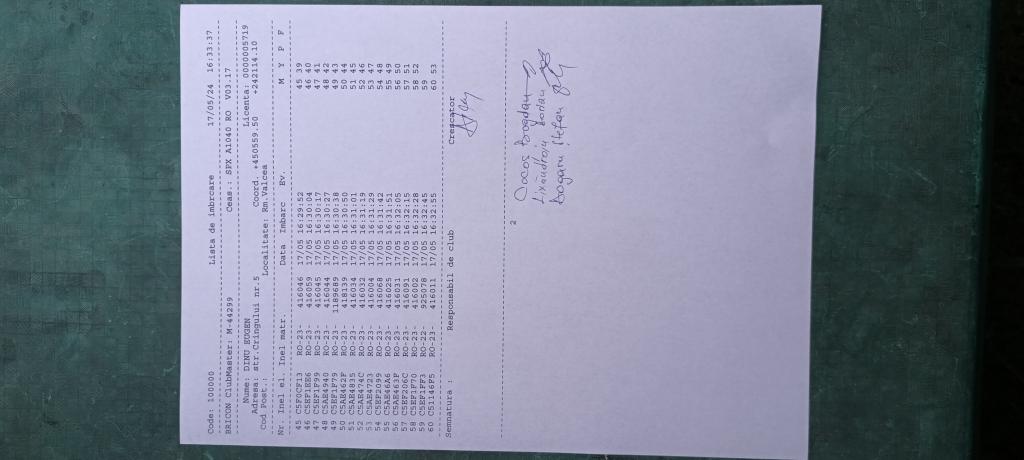 Code: 100000 Lista de imbrcare 17/05/24 16:33:37
BRICON ClubMaster: M-44299 Ceas.: SPX A1040 RO V03.17
Nume: DINU EUGEN Licenta: 0000005719
Adresa: str.Cringului nr.5 Coord. +450559.50 +242114.10
Cod Post.: Localitate: Rm.Valcea
Nr. Inel el. Inel matr. Data Imbarc Ev. M Y P F
45 C5F0CF1B RO-23- 416046 17/05 16:29:52 45 39
46 C5EF1EE6 RO-23- 416059 17/05 16:30:04 46 40
47 C5EF1F99 RO-23- 416045 17/05 16:30:17 47 41
48 C5AE4940 RO-23- 416044 17/05 16:30:27 48 42
49 C5EF1F79 RO-23- 1189689 17/05 16:30:38 49 43
50 C5AE462F RO-23- 418139 17/05 16:30:50 50 44
51 C5AE4835 RO-23- 416034 17/05 16:31:01 51 45
52 C5AE474C RO-23- 416032 17/05 16:31:19 52 46
53 C5AE4723 RO-23- 416004 17/05 16:31:29 53 47
54 C5EF2099 RO-23- 416068 17/05 16:31:42 54 48
55 C5AE46A6 RO-23- 416025 17/05 16:31:51 55 49
56 C5AE463F RO-23- 416031 17/05 16:32:05 56 50
57 C5EF206C RO-23- 416091 17/05 16:32:15 57 51
58 C5EF1F70 RO-23- 416002 17/05 16:32:28 58 52
59 C5EF1FF3 RO-22- 925078 17/05 16:32:45 59
60 C51146F5 RO-23- 416011 17/05 16:32:55 60 53
Semnatura : Responsabil de club Crescator
2
Cocos Bogdan
Lixandroiu Iordan
Dogaru Stefan